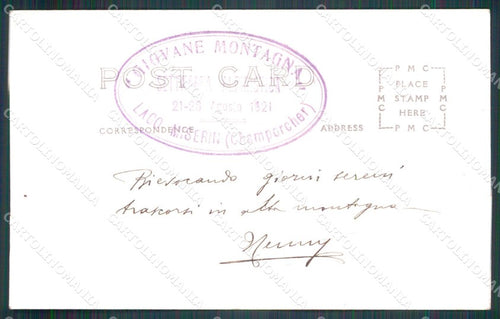 GIOVANE MONTAGNA
POST CARD
21-28 Agosto 1921
LAGO MISERIN (Champorcher)
CORRESPONDENCE
ADDRESS
PMC
PLACE
STAMP
HERE
PMC
PMC
PMC
Rievocando giorni sereni
trascorsi in alta montagna
CARTOLINOMANIA